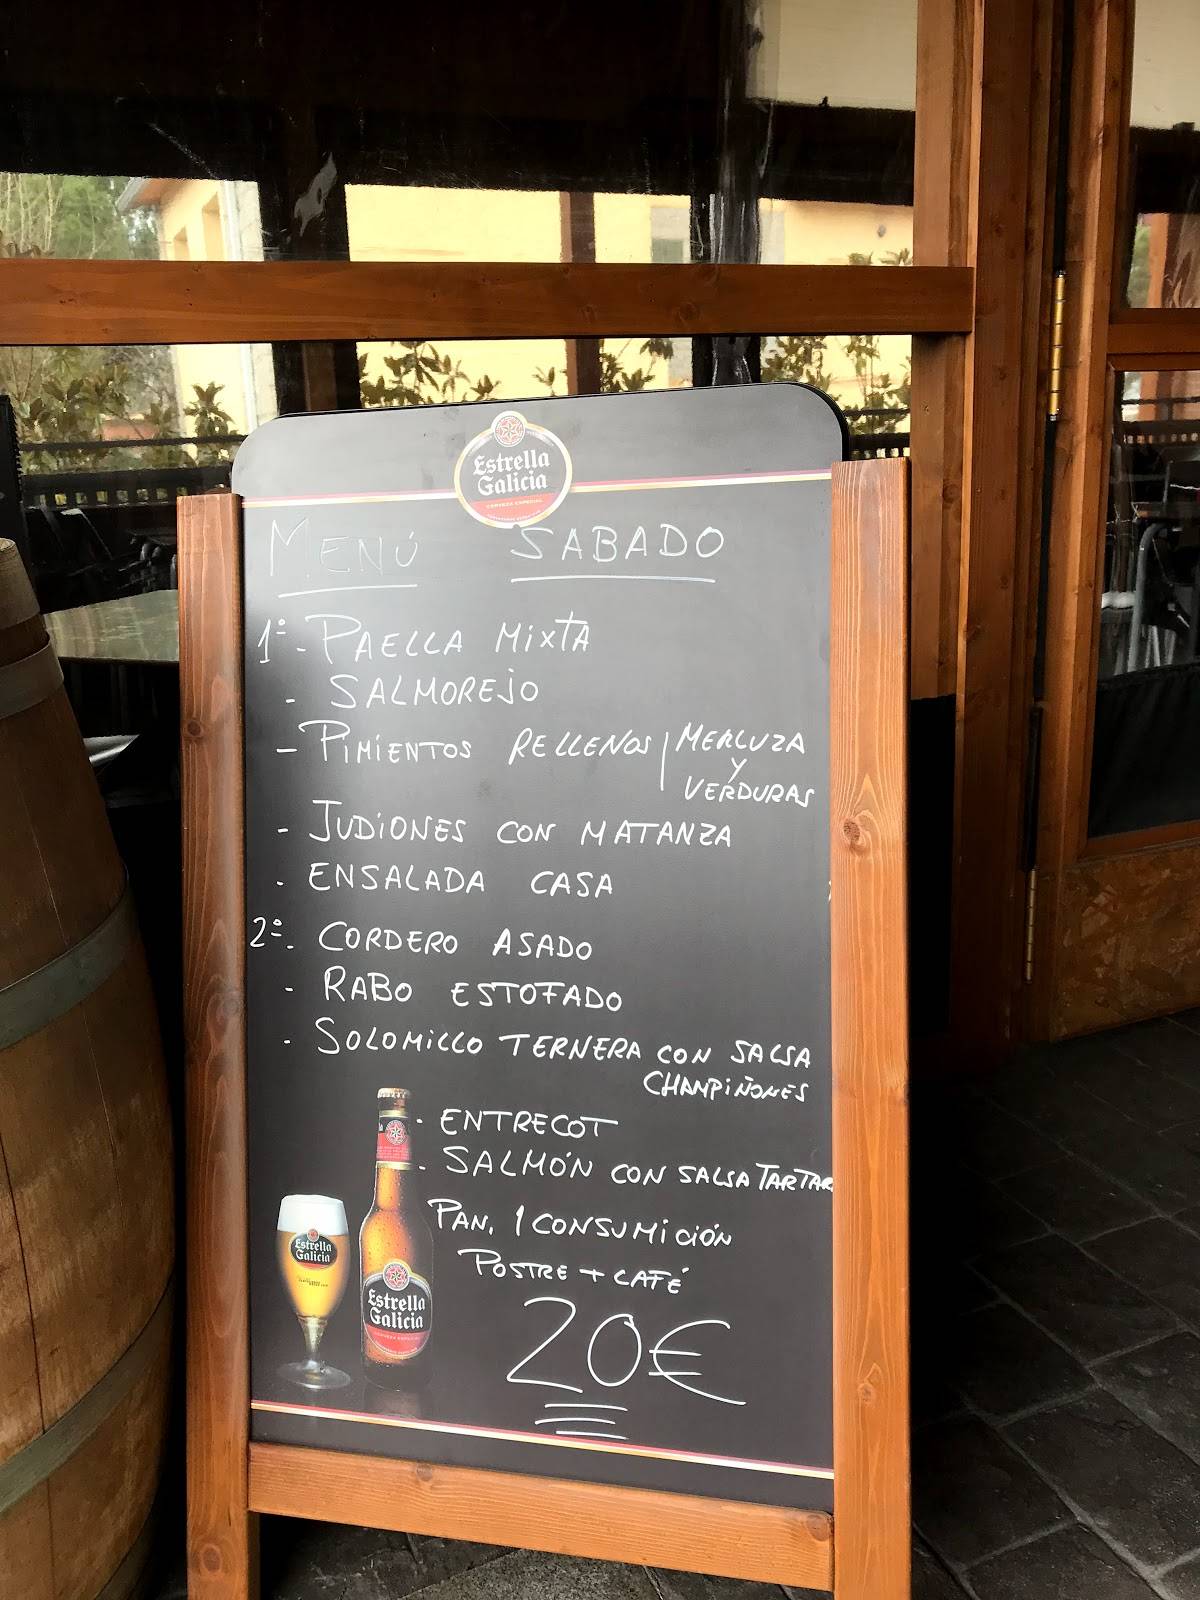 Estrella
Galicia
CERVEZA ESPECIAL
MENÚ SABADO
1º - PAELLA MIXTA
- SALMOREJO
- PIMIENTOS RELLENOS | MERLUZA
Y
VERDURAS
- JUDIONES CON MATANZA
- ENSALADA CASA
2º - CORDERO ASADO
- RABO ESTOFADO
- SOLOMILLO TERNERA CON SALSA
CHAMPIÑONES
- ENTRECOT
- SALMÓN CON SALSA TARTAR
PAN, 1 CONSUMICIÓN
POSTRE + CAFÉ
20€
Estrella
Galicia
Estrella
Galicia